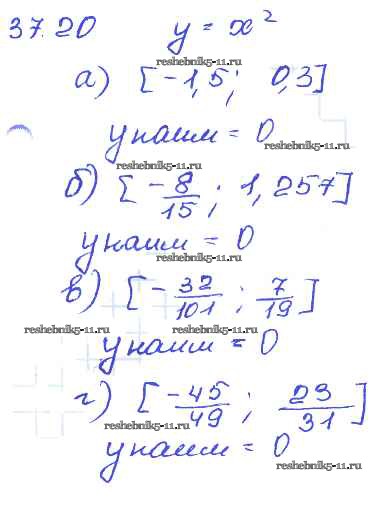 37.20 y = x²
reshebnik5-11.ru
а) [-1,5; 0,3]
y наим = 0
reshebnik5-11.ru
reshebnik5-11.ru
б) [-8/15; 1,257]
y наим = 0
reshebnik5-11.ru
в) [-32/101; 7/19]
reshebnik5-11.ru reshebnik5-11.ru
y наим = 0
г) [-45/49; 23/31]
reshebnik5-11.ru
y наим = 0
reshebnik5-11.ru